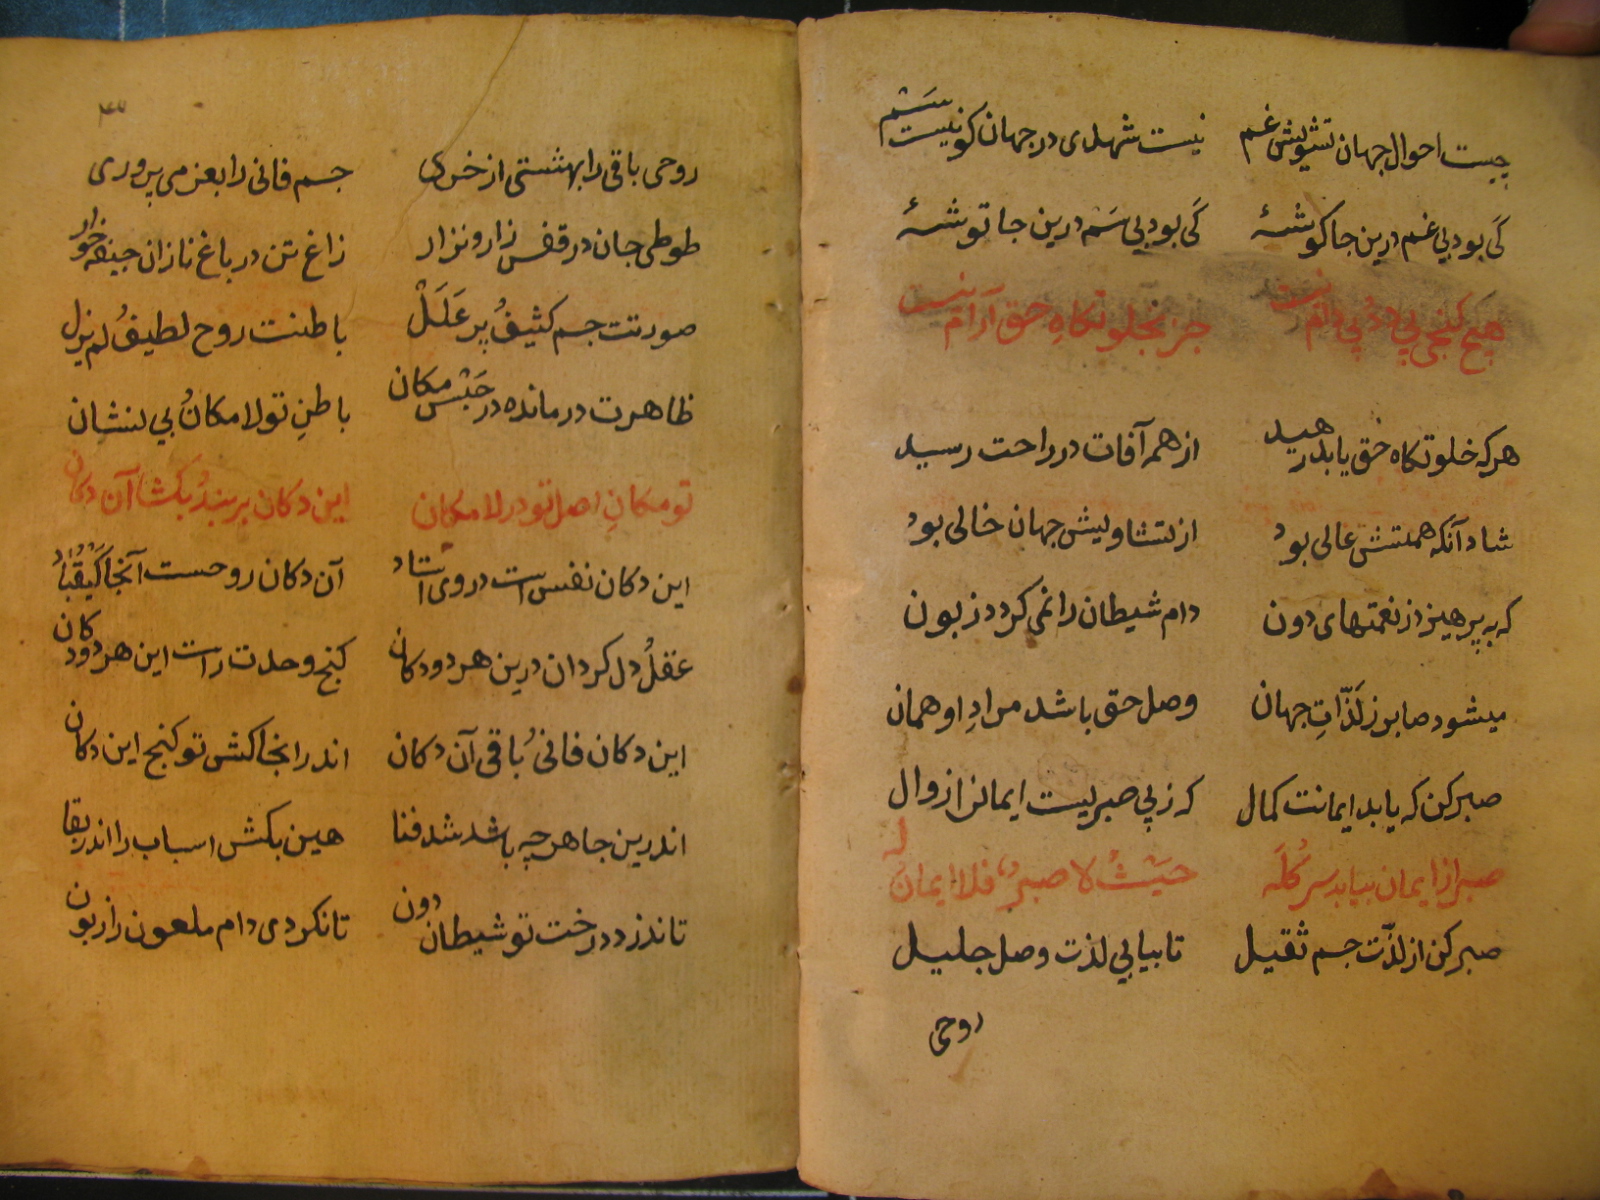 چیست احوال جهان تشویش غم نیست شهدی در جهان کو نیست سَم
کَی بود بی غم درین جا کوشۀ کَی بود بی سَم درین جا توشۀ
هیچ کنجی بی دد و بی دام نیست جز بخلوتکاهِ حق آرام نیست
هرکه خلوتکاه حق یابد رهید از همه آفات در راحت رسید
شاد آنکه همتش عالی بود از نشاویش جهان خالی بود
که بپرهیزد از نعمتهای دون دام شیطان را نمی کردد زبون
میشود صابر ز لَذّاتِ جهان وصل حق باشد مرادِ او همان
صبر کن که یابد ایمانت کمال که ز بی صبریست ایمانرا زوال
صبر از ایمان بیابد سر کُلَه حَیْثُ لا صبرٌ فلا ایمانَ لَه
صبر کن از لذّت جسم ثقیل تا بیابی لذت وصل جلیل
روحی
۳
روحی باقی را بهشتی از خری جسم فانی را بعز می پروری
طوطی جان در قفس زار و نزار زاغ تن در باغ نازان جیفه خوار
صورتت جسم کثیفُ پر عَلَلْ باطنت روح لطیفُ لم یزل
ظاهرت درمانده در حَبْس مکان باطنِ تو لامکانُ بی نشان
تو مکانِ اصل تو در لامکان این دکان بر بندُ بکشا آن دکان
این دکان نفس است در وی استاد آن دکان روحست آنجا کَیقُباد
عقلُ دل کردان درین هر دو دکان کنج وحدت راست این هر دو دکان
این دکان فانیُ باقی آن دکان اندر انجا کش تو کنج این دکان
اندرین جا هرچه باشد شد فنا هین بکش اسباب را اندر بقا
تا ندزدد رخت تو شیطان دون تا نکردی دام ملعون را زبون